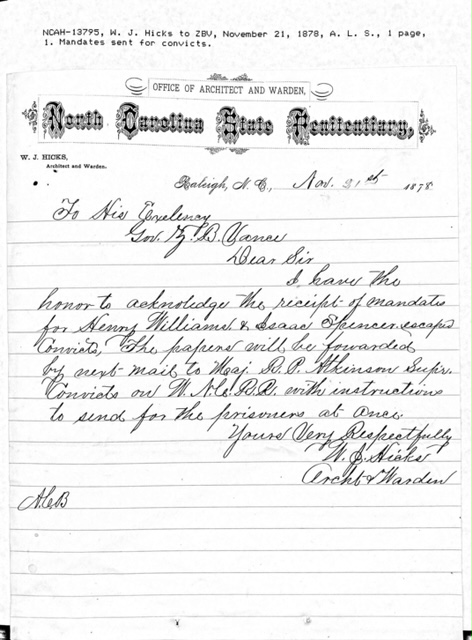 NCAH-13795, W. J. Hicks to ZBV, November 21, 1878, A. L. S., 1 page,
1. Mandates sent for convicts.
OFFICE OF ARCHITECT AND WARDEN,
North Carolina State Penitentiary,
W. J. HICKS,
Architect and Warden.
Raleigh, N. C., Nov. 21st 1878
To His Exelency
Gov. Z. B. Vance
Dear Sir
I have the
honor to acknoledge the receipt of mandates
for Henry Williams & Isaac Spencer escaped
Convicts, The papers will be fowarded
by next mail to Maj B. P. Atkinson Supr.
Convicts on W. N. C. R. R. with instructions
to send for the prisoners at once.
Yours Very Respectfully
W. J. Hicks
Archt & Warden